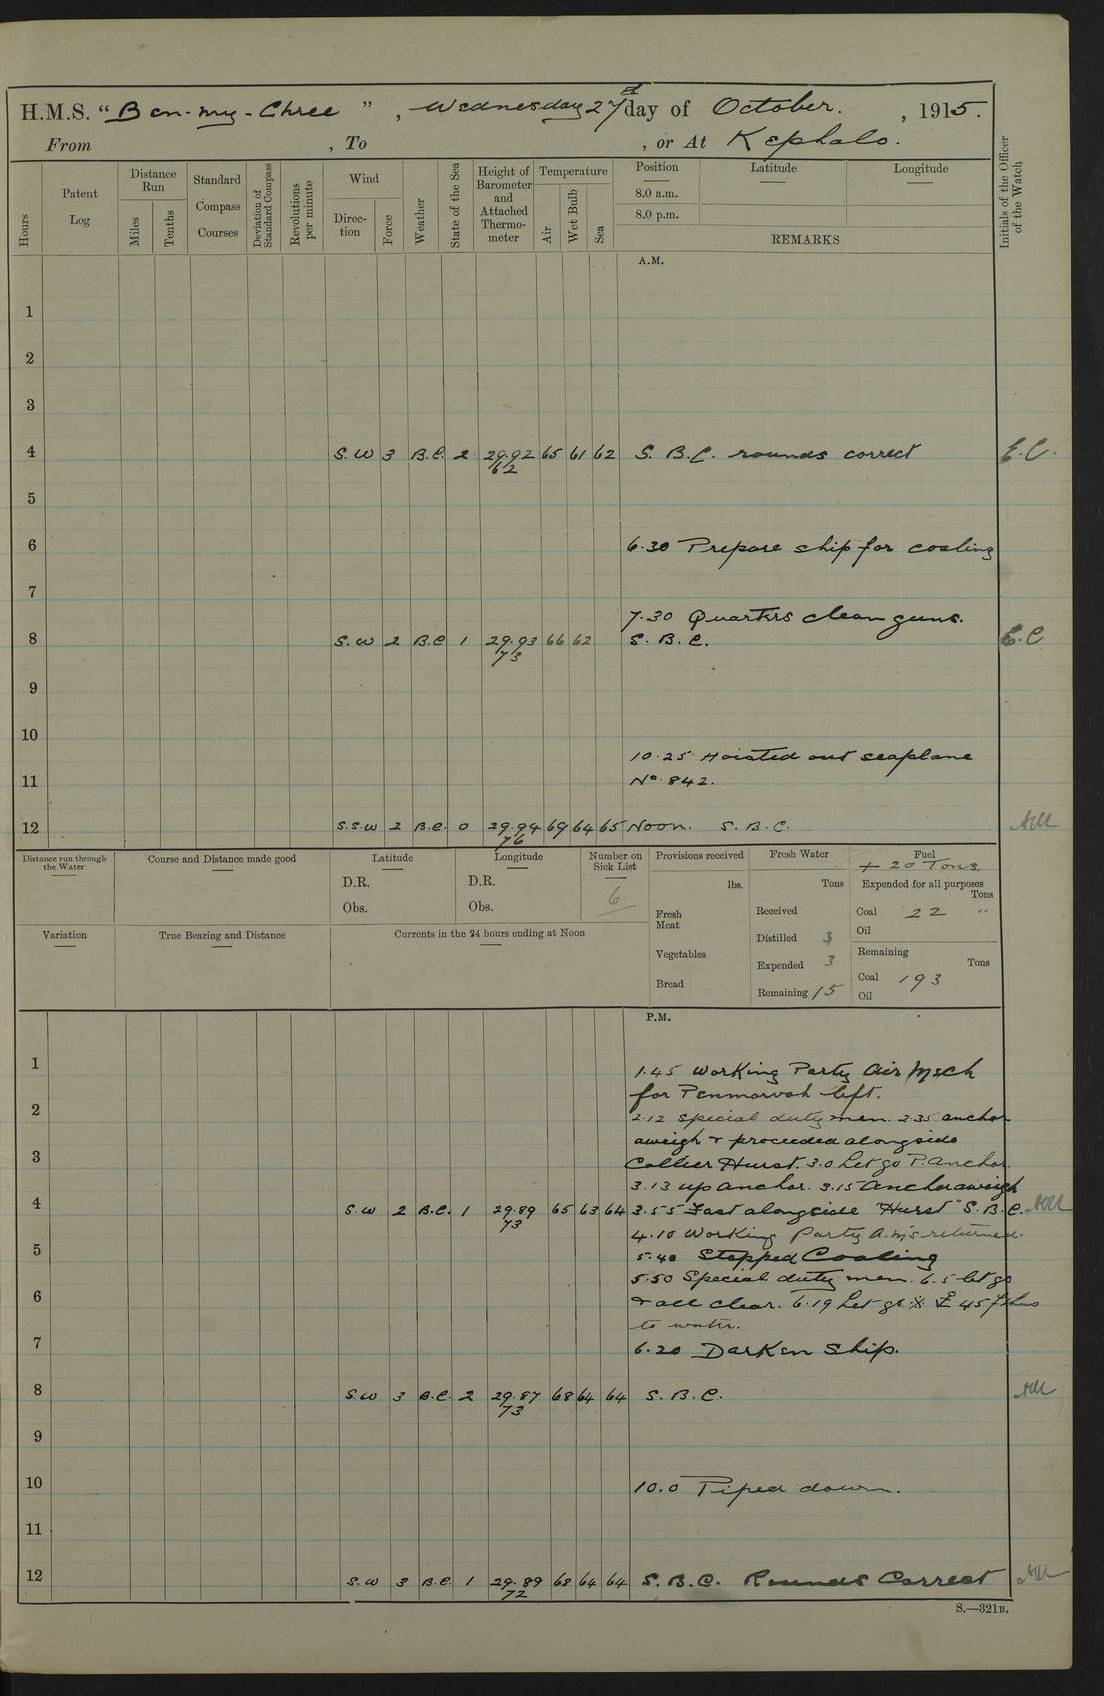 H.M.S. "Ben-my-Chree", Wednesday 27th day of October, 1915.
From , To , or At Kephalo.
Hours
Patent Log
Distance Run
Miles
Tenths
Standard Compass Courses
Deviation of Standard Compass
Revolutions per minute
Wind
Direction
Force
Weather
State of the Sea
Height of Barometer and Attached Thermometer
Temperature
Air
Wet Bulb
Sea
Position
8.0 a.m.
8.0 p.m.
Latitude
Longitude
REMARKS
Initials of the Officer of the Watch
A.M.
1
2
3
4 S.W 3 B.C. 2 29.92 65 61 62 S. B. C. rounds correct E.C.
62
5
6 6.30 Prepare ship for coaling
7
7.30 Quarters clean guns.
8 S.W 2 B.C 1 29.93 66 62 S. B. C. E.C
73
9
10
10.25 Hoisted out seaplane
11 No. 842.
12 S.S.W 2 B.C. 0 29.94 69 64 65 Noon. S. B. C.
76
Distance run through the Water
Course and Distance made good
Latitude
D.R.
Obs.
Longitude
D.R.
Obs.
Number on Sick List
6
Provisions received
lbs.
Fresh Meat
Vegetables
Bread
Fresh Water
Tons
Received
Distilled 3
Expended 3
Remaining 15
Fuel
+ 20 Tons.
Expended for all purposes
Tons
Coal 22 "
Oil
Remaining
Tons
Coal 193
Oil
Variation
True Bearing and Distance
Currents in the 24 hours ending at Noon
P.M.
1 1.45 Working Party Air Mech
for Penmarvah left.
2 2.12 Special duty men. 2.35 anchor
aweigh & proceeded alongside
3 Collier Hurst. 3.0 Let go P. anchor.
3.13 up anchor. 3.15 Anchor aweigh
4 S.W 2 B.C. 1 29.89 65 63 64 3.55 Fast alongside "Hurst" S.B.C.
73
4.10 Working Party A.M's returned.
5 5.40 Stopped Coaling
5.50 Special duty men. 6.5 let go
6 & all clear. 6.19 Let go 45 fthms
to water.
7 6.20 Darken Ship.
8 S.W 3 B.C. 2 29.87 68 64 64 S. B. C.
73
9
10 10.0 Piped down.
11
12 S.W 3 B.C. 1 29.89 68 64 64 S. B. C. Rounds Correct
72
S.—321B.